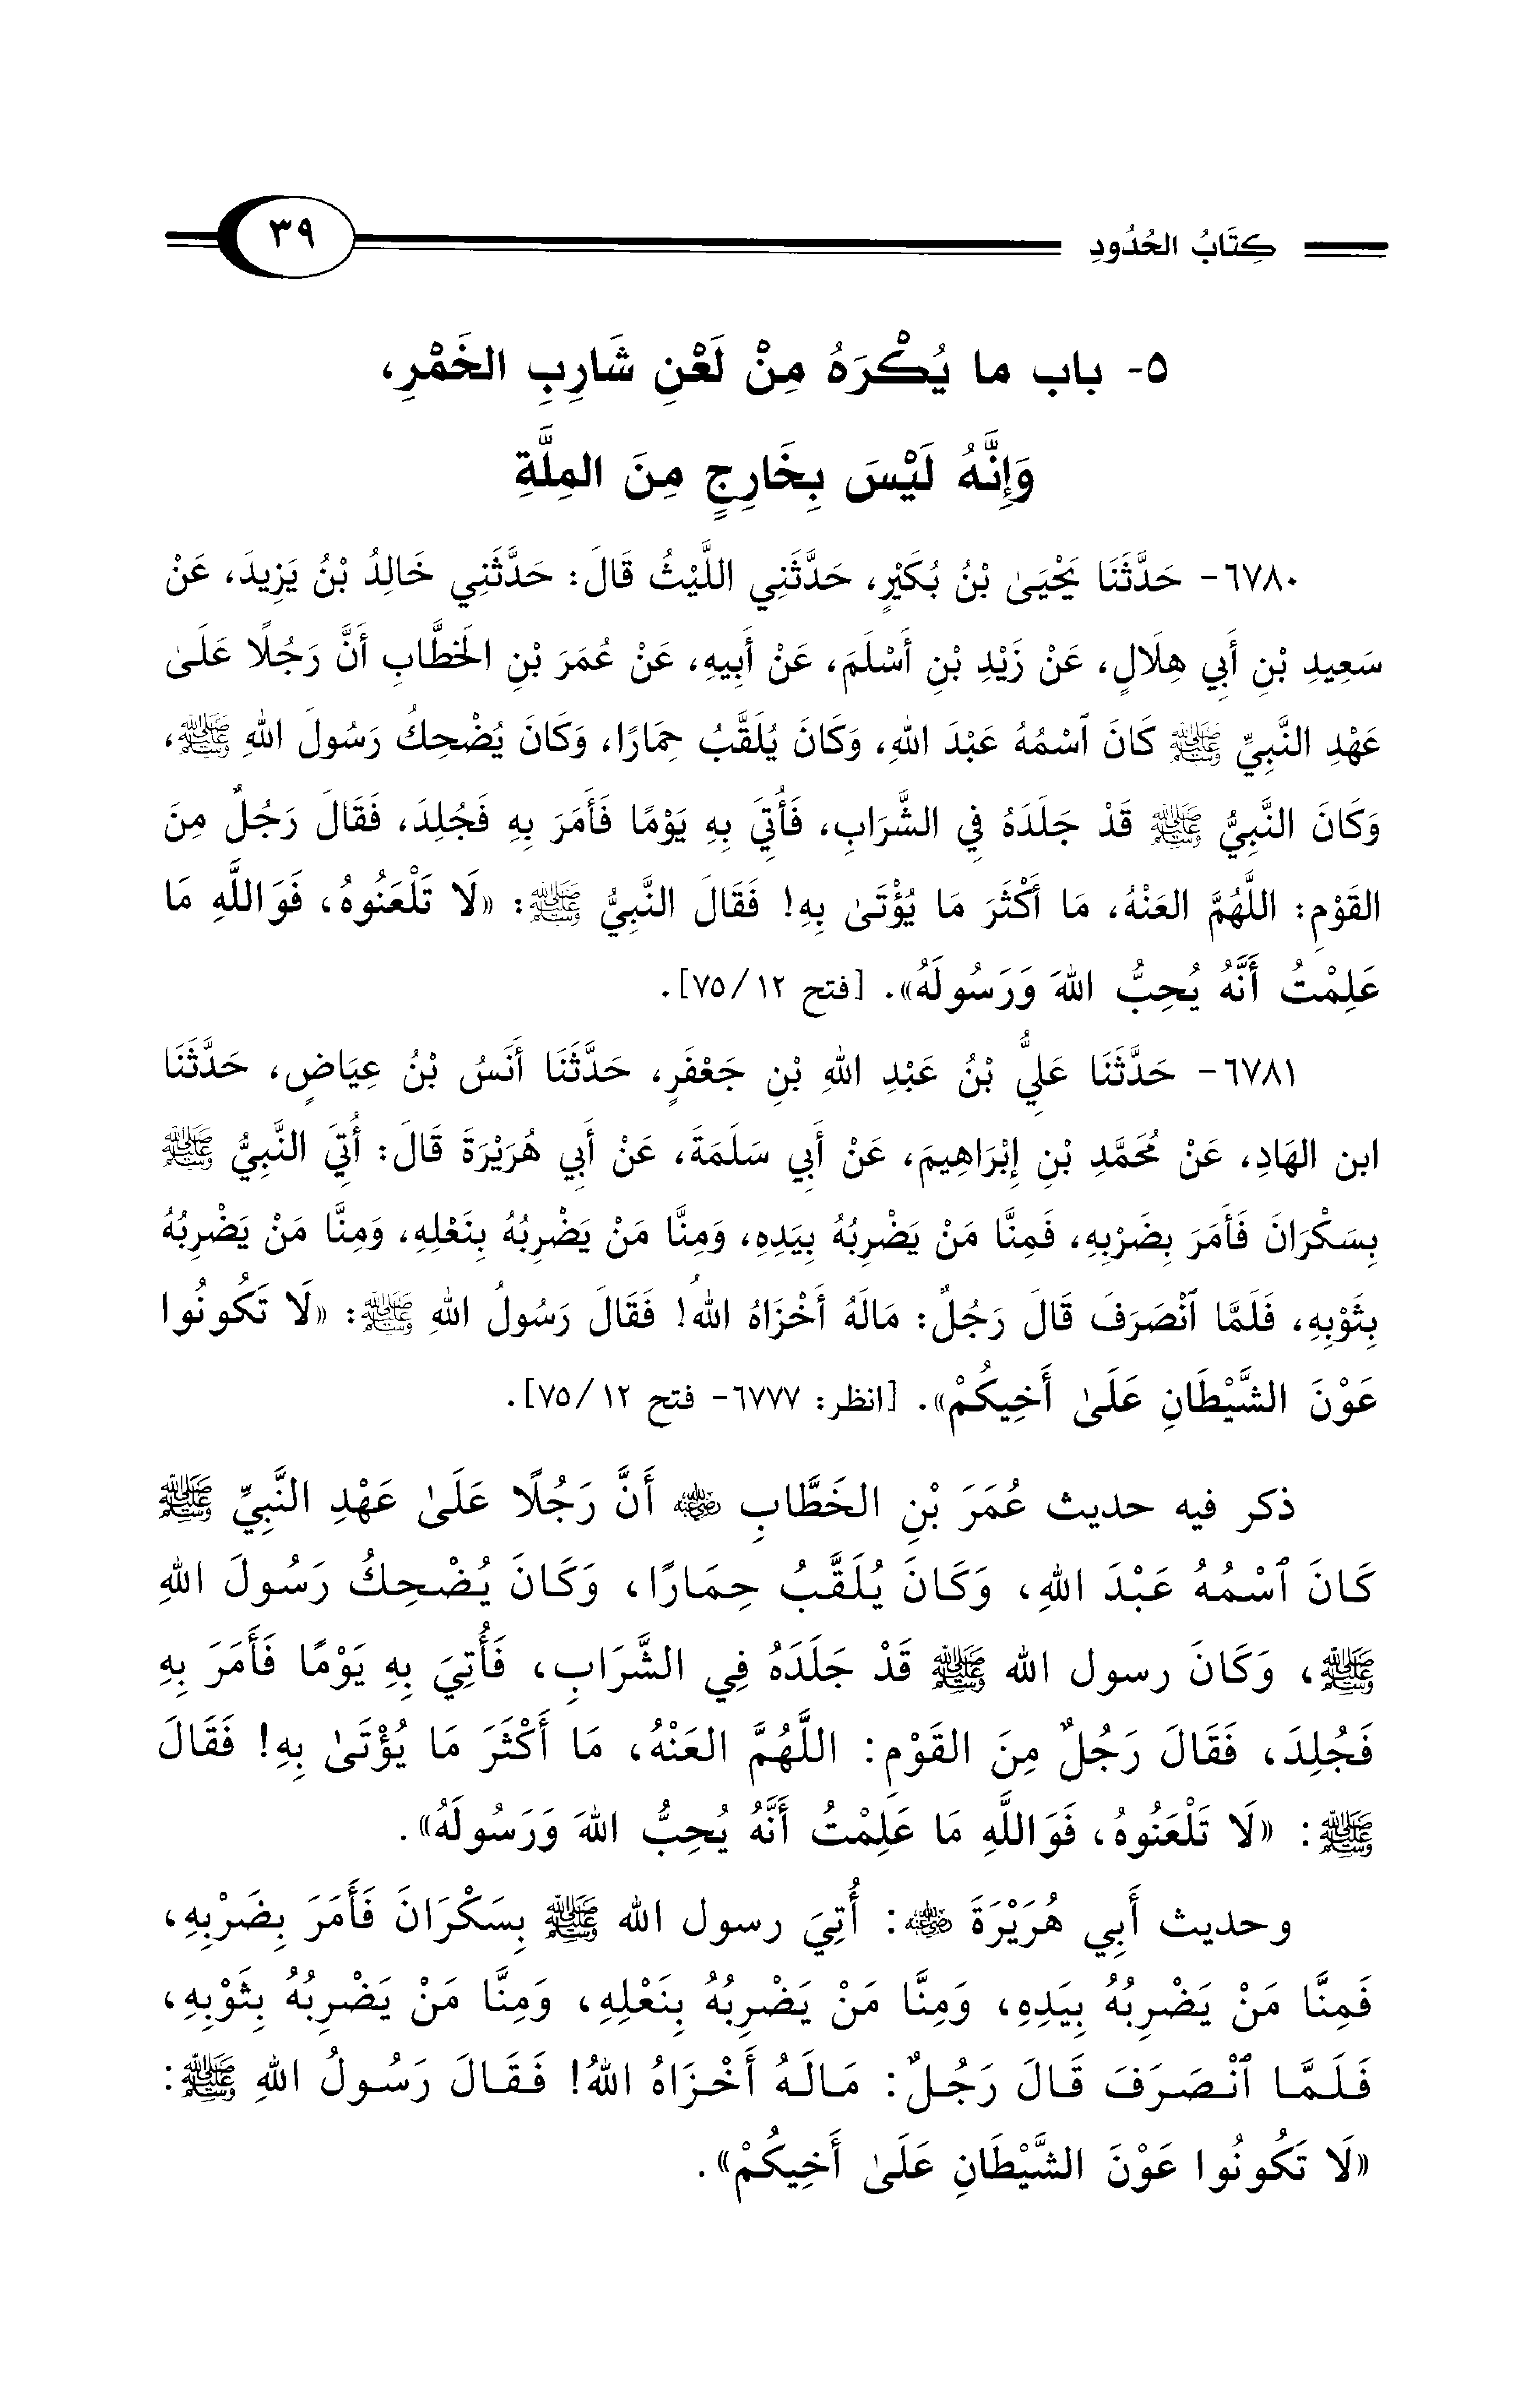 كِتَابُ الحُدُودِ
٣٩
٥- باب ما يُكْرَهُ مِنْ لَعْنِ شَارِبِ الخَمْرِ،
وَإِنَّهُ لَيْسَ بِخَارِجٍ مِنَ المِلَّةِ
٦٧٨٠- حَدَّثَنَا يَحْيَىٰ بْنُ بُكَيْرٍ، حَدَّثَنِي اللَّيْثُ قَالَ: حَدَّثَنِي خَالِدُ بْنُ يَزِيدَ، عَنْ
سَعِيدِ بْنِ أَبِي هِلَالٍ، عَنْ زَيْدِ بْنِ أَسْلَمَ، عَنْ أَبِيهِ، عَنْ عُمَرَ بْنِ الَخطَّابِ أَنَّ رَجُلًا عَلَىٰ
عَهْدِ النَّبِيِّ ﷺ كَانَ ٱسْمُهُ عَبْدَ اللهِ، وَكَانَ يُلَقَّبُ حِمَارًا، وَكَانَ يُضْحِكُ رَسُولَ اللهِ ﷺ،
وَكَانَ النَّبِيُّ ﷺ قَدْ جَلَدَهُ فِي الشَّرَابِ، فَأُتِيَ بِهِ يَوْمًا فَأَمَرَ بِهِ فَجُلِدَ، فَقَالَ رَجُلٌ مِنَ
القَوْمِ: اللَّهُمَّ العَنْهُ، مَا أَكْثَرَ مَا يُؤْتَىٰ بِهِ! فَقَالَ النَّبِيُّ ﷺ: «لَا تَلْعَنُوهُ، فَوَاللَّهِ مَا
عَلِمْتُ أَنَّهُ يُحِبُّ اللهَ وَرَسُولَهُ». [فتح ١٢/ ٧٥].
٦٧٨١- حَدَّثَنَا عَلِيُّ بْنُ عَبْدِ اللهِ بْنِ جَعْفَرٍ، حَدَّثَنَا أَنَسُ بْنُ عِيَاضٍ، حَدَّثَنَا
ابن الهَادِ، عَنْ مُحَمَّدِ بْنِ إِبْرَاهِيمَ، عَنْ أَبِي سَلَمَةَ، عَنْ أَبِي هُرَيْرَةَ قَالَ: أُتِيَ النَّبِيُّ ﷺ
بِسَكْرَانَ فَأَمَرَ بِضَرْبِهِ، فَمِنَّا مَنْ يَضْرِبُهُ بِيَدِهِ، وَمِنَّا مَنْ يَضْرِبُهُ بِنَعْلِهِ، وَمِنَّا مَنْ يَضْرِبُهُ
بِثَوْبِهِ، فَلَمَّا ٱنْصَرَفَ قَالَ رَجُلٌ: مَالَهُ أَخْزَاهُ اللهُ! فَقَالَ رَسُولُ اللهِ ﷺ: «لَا تَكُونُوا
عَوْنَ الشَّيْطَانِ عَلَىٰ أَخِيكُمْ». [انظر: ٦٧٧٧- فتح ١٢/ ٧٥].
ذكر فيه حديث عُمَرَ بْنِ الخَطَّابِ رضي الله عنه أَنَّ رَجُلًا عَلَىٰ عَهْدِ النَّبِيِّ ﷺ
كَانَ ٱسْمُهُ عَبْدَ اللهِ، وَكَانَ يُلَقَّبُ حِمَارًا، وَكَانَ يُضْحِكُ رَسُولَ اللهِ
ﷺ، وَكَانَ رسول الله ﷺ قَدْ جَلَدَهُ فِي الشَّرَابِ، فَأُتِيَ بِهِ يَوْمًا فَأَمَرَ بِهِ
فَجُلِدَ، فَقَالَ رَجُلٌ مِنَ القَوْمِ: اللَّهُمَّ العَنْهُ، مَا أَكْثَرَ مَا يُؤْتَىٰ بِهِ! فَقَالَ
ﷺ: «لَا تَلْعَنُوهُ، فَوَاللَّهِ مَا عَلِمْتُ أَنَّهُ يُحِبُّ اللهَ وَرَسُولَهُ».
وحديث أَبِي هُرَيْرَةَ رضي الله عنه: أُتِيَ رسول الله ﷺ بِسَكْرَانَ فَأَمَرَ بِضَرْبِهِ،
فَمِنَّا مَنْ يَضْرِبُهُ بِيَدِهِ، وَمِنَّا مَنْ يَضْرِبُهُ بِنَعْلِهِ، وَمِنَّا مَنْ يَضْرِبُهُ بِثَوْبِهِ،
فَلَمَّا ٱنْصَرَفَ قَالَ رَجُلٌ: مَالَهُ أَخْزَاهُ اللهُ! فَقَالَ رَسُولُ اللهِ ﷺ:
«لَا تَكُونُوا عَوْنَ الشَّيْطَانِ عَلَىٰ أَخِيكُمْ».